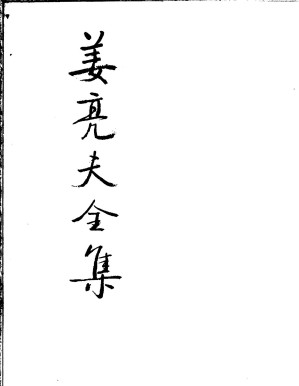 姜亮夫全集